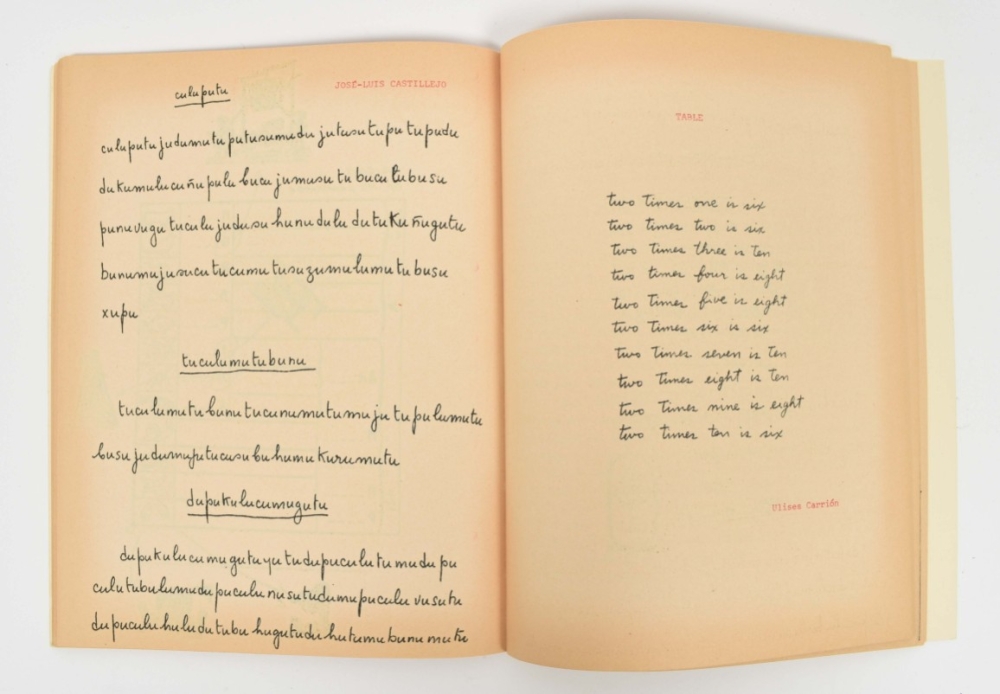 JOSÉ-LUIS CASTILLEJO
culuputu
culuputujudumutuputusumudu jutusutupu tupudu
dukumulucuñupulu bucu jumusu tu bucu tubusu
punuvugu tuculu judusu hunu dulu dutuku ñugutu
bunumujusucu tucumu tusuzumulumutu busu
xupu
tuculumutubunu
tuculumutubunutucunumutumuju tupulumutu
busujudumuputucusubuhumukurumutu
dupukulucumugutu
dupukulucumugutuyutudupuculutumudupu
culutubulumudupuculunusutudumupuculu vusutu
dupuculuhuludutubu hugutuduhutumubunumutu
TABLE
two times one is six
two times two is six
two times three is ten
two times four is eight
two times five is eight
two times six is six
two times seven is ten
two times eight is ten
two times nine is eight
two times ten is six
Ulises Carrión